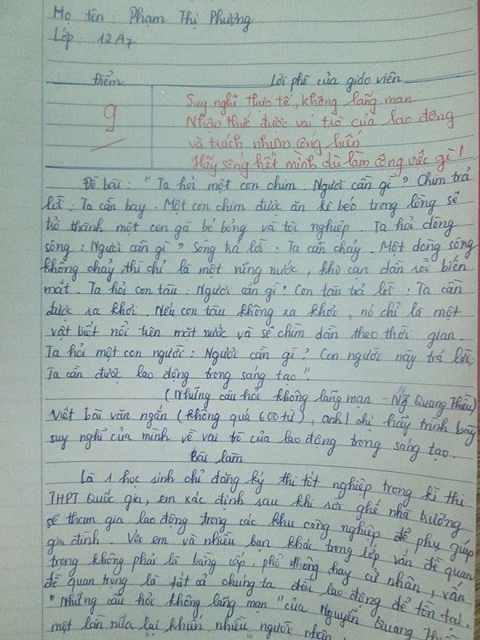 Họ tên: Phạm Thị Phương
Lớp: 12A7
Điểm
Lời phê của giáo viên
9
Suy nghĩ thực tế, không lãng mạn
Nhận thức được vai trò của lao động
và trách nhiệm cống hiến
Hãy sống hết mình dù làm công việc gì!
Đề bài: "Ta hỏi một con chim: Ngươi cần gì? Chim trả
lời: Ta cần bay. Một con chim được ăn kê béo trong lồng sẽ
trở thành một con gà bé bỏng và tội nghiệp. Ta hỏi dòng
sông: Ngươi cần gì? Sông trả lời: Ta cần chảy. Một dòng sông
không chảy thì chỉ là một vũng nước, khô cạn dần rồi biến
mất. Ta hỏi con tàu: Ngươi cần gì? Con tàu trả lời: Ta cần
được ra khơi. Nếu con tàu không ra khơi, nó chỉ là một
vật biết nổi trên mặt nước và sẽ chìm dần theo thời gian.
Ta hỏi một con người: Ngươi cần gì? Con người này trả lời:
Ta cần được lao động trong sáng tạo".
(Những câu hỏi không lãng mạn - Ng Quang Thiều)
Viết bài văn ngắn (không quá 600 từ), anh/chị hãy trình bày
suy nghĩ của mình về vai trò của lao động trong sáng tạo.
Bài làm
Là 1 học sinh chỉ đăng ký thi tốt nghiệp trong kì thi
THPT Quốc gia, em xác định sau khi rời ghế nhà trường
sẽ tham gia lao động trong các khu công nghiệp để phụ giúp
gia đình. Với em và nhiều bạn khác trong lớp, vấn đề quan
trọng không phải là bằng cấp, phổ thông hay cử nhân, vấn
đề quan trọng là tất cả chúng ta đều lao động để tồn tại.
"Những câu hỏi không lãng mạn" của Nguyễn Quang
một lần nữa lại khiến nhiều người nhận